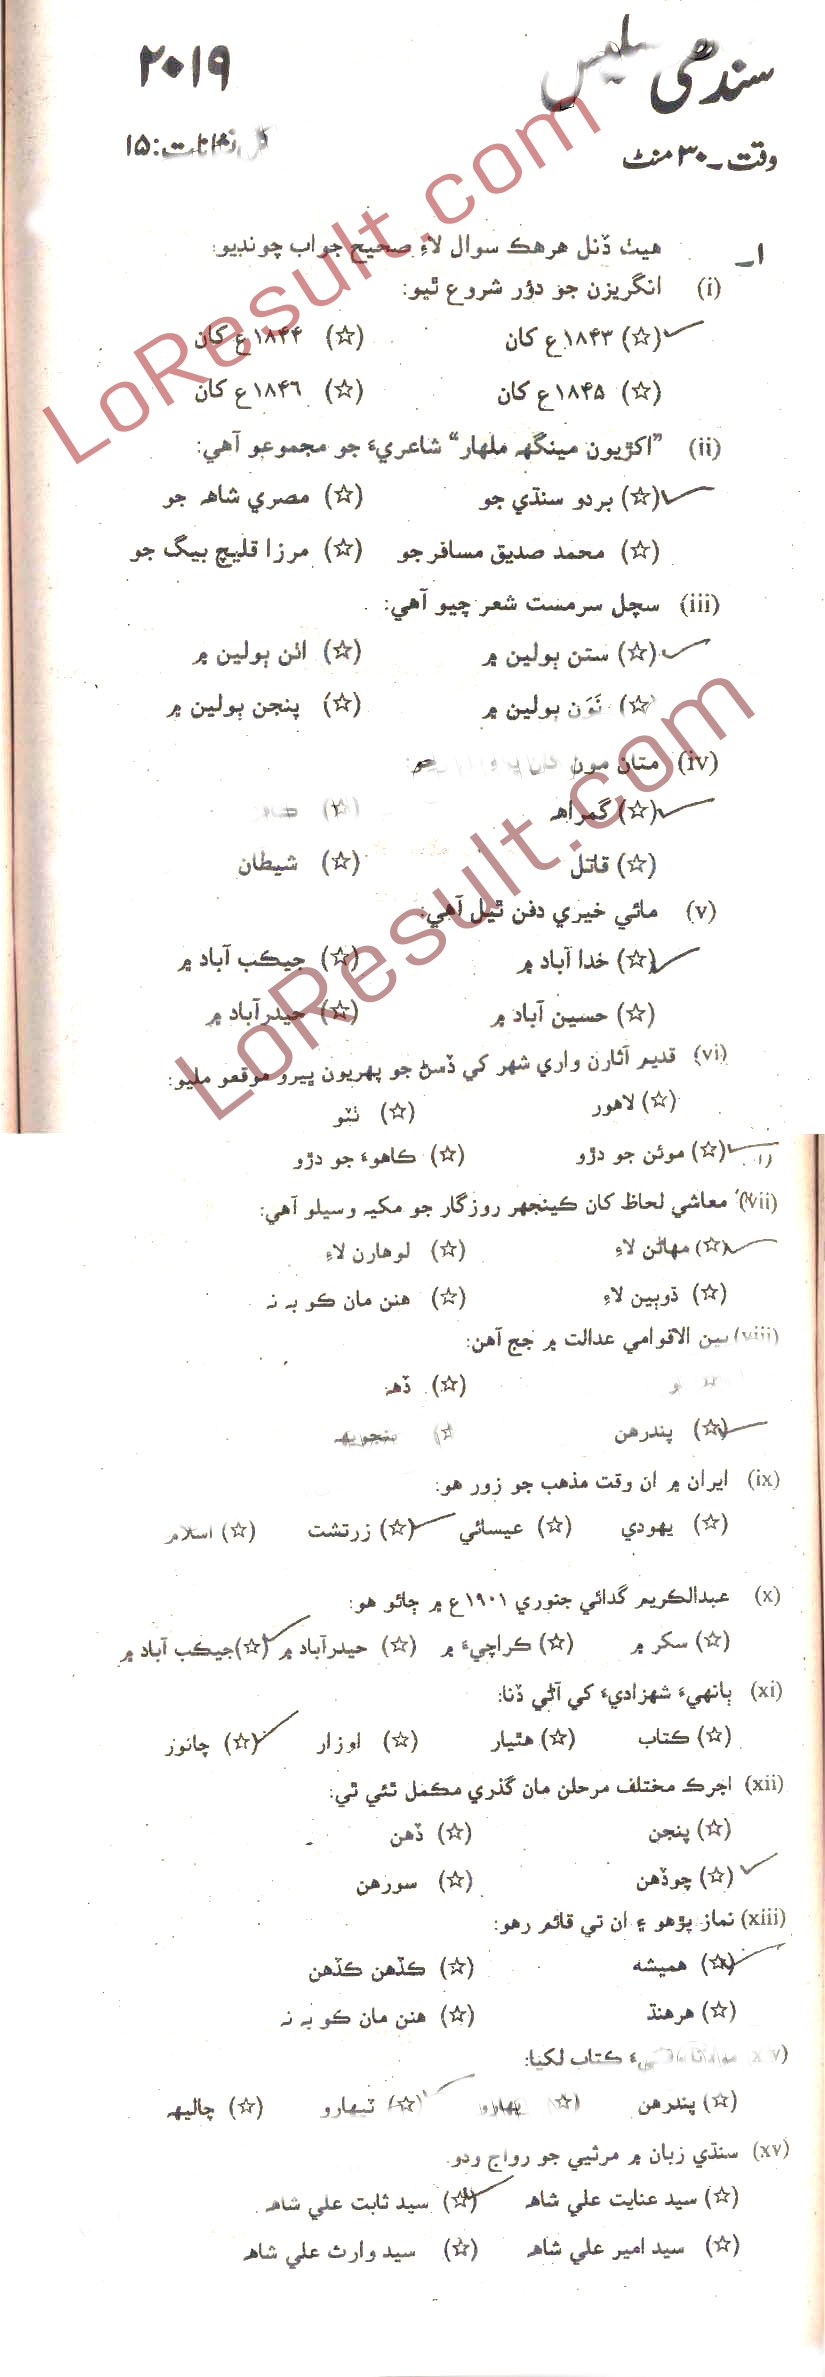 سنڌي سليس ۲۰۱۹
وقت۔ ۳۰ منٹ کل نشانات: ۱۵
۱۔ هيٺ ڏنل هرهڪ سوال لاءِ صحيح جواب چونڊيو:
(i) انگريزن جو دؤر شروع ٿيو:
(☆) ۱۸۴۳ع کان (☆) ۱۸۴۴ع کان
(☆) ۱۸۴۵ع کان (☆) ۱۸۴۶ع کان
(ii) ”اکڙيون مينگهه ملهار“ شاعريءَ جو مجموعو آهي:
(☆) بردو سنڌي جو (☆) مصري شاهه جو
(☆) محمد صديق مسافر جو (☆) مرزا قليچ بيگ جو
(iii) سچل سرمست شعر چيو آهي:
(☆) ستن ٻولين ۾ (☆) اٺن ٻولين ۾
(☆) نَوَن ٻولين ۾ (☆) پنجن ٻولين ۾
(iv) متان مون
(☆) گمراهه (☆)
(☆) قاتل (☆) شيطان
(v) مائي خيري دفن ٿيل آهي:
(☆) خدا آباد ۾ (☆) جيڪب آباد ۾
(☆) حسين آباد ۾ (☆) حيدرآباد ۾
(vi) قديم آثارن واري شهر کي ڏسڻ جو پهريون ڀيرو موقعو مليو:
(☆) لاهور (☆) ٺٽو
(☆) موئن جو دڙو (☆) ڪاهوءَ جو دڙو
(vii) معاشي لحاظ کان ڪينجهر روزگار جو مکيه وسيلو آهي:
(☆) مهاڻن لاءِ (☆) لوهارن لاءِ
(☆) ڌوٻين لاءِ (☆) هنن مان ڪو به نه
(viii) بين الاقوامي عدالت ۾ جج آهن:
(☆) ڏهه
(☆) پندرهن (☆) پنجويهه
(ix) ايران ۾ ان وقت مذهب جو زور هو:
(☆) يهودي (☆) عيسائي (☆) زرتشت (☆) اسلام
(x) عبدالڪريم گدائي جنوري ۱۹۰۱ع ۾ ڄائو هو:
(☆) سکر ۾ (☆) ڪراچيءَ ۾ (☆) حيدرآباد ۾ (☆) جيڪب آباد ۾
(xi) ٻانهيءَ شهزاديءَ کي آڻي ڏنا:
(☆) ڪتاب (☆) هٿيار (☆) اوزار (☆) چانور
(xii) اجرڪ مختلف مرحلن مان گذري مڪمل ٿئي ٿي:
(☆) پنجن (☆) ڏهن
(☆) چوڏهن (☆) سورهن
(xiii) نماز پڙهو ۽ ان تي قائم رهو:
(☆) هميشه (☆) ڪڏهن ڪڏهن
(☆) هرهنڌ (☆) هنن مان ڪو به نه
ڪتاب لکيا:
(☆) پندرهن (☆) (☆) ٽيهارو (☆) چاليهه
(xv) سنڌي زبان ۾ مرثيي جو رواج وڌو.
(☆) سيد عنايت علي شاهه (☆) سيد ثابت علي شاهه
(☆) سيد امير علي شاهه (☆) سيد وارث علي شاهه
LoResult.com
LoResult.com